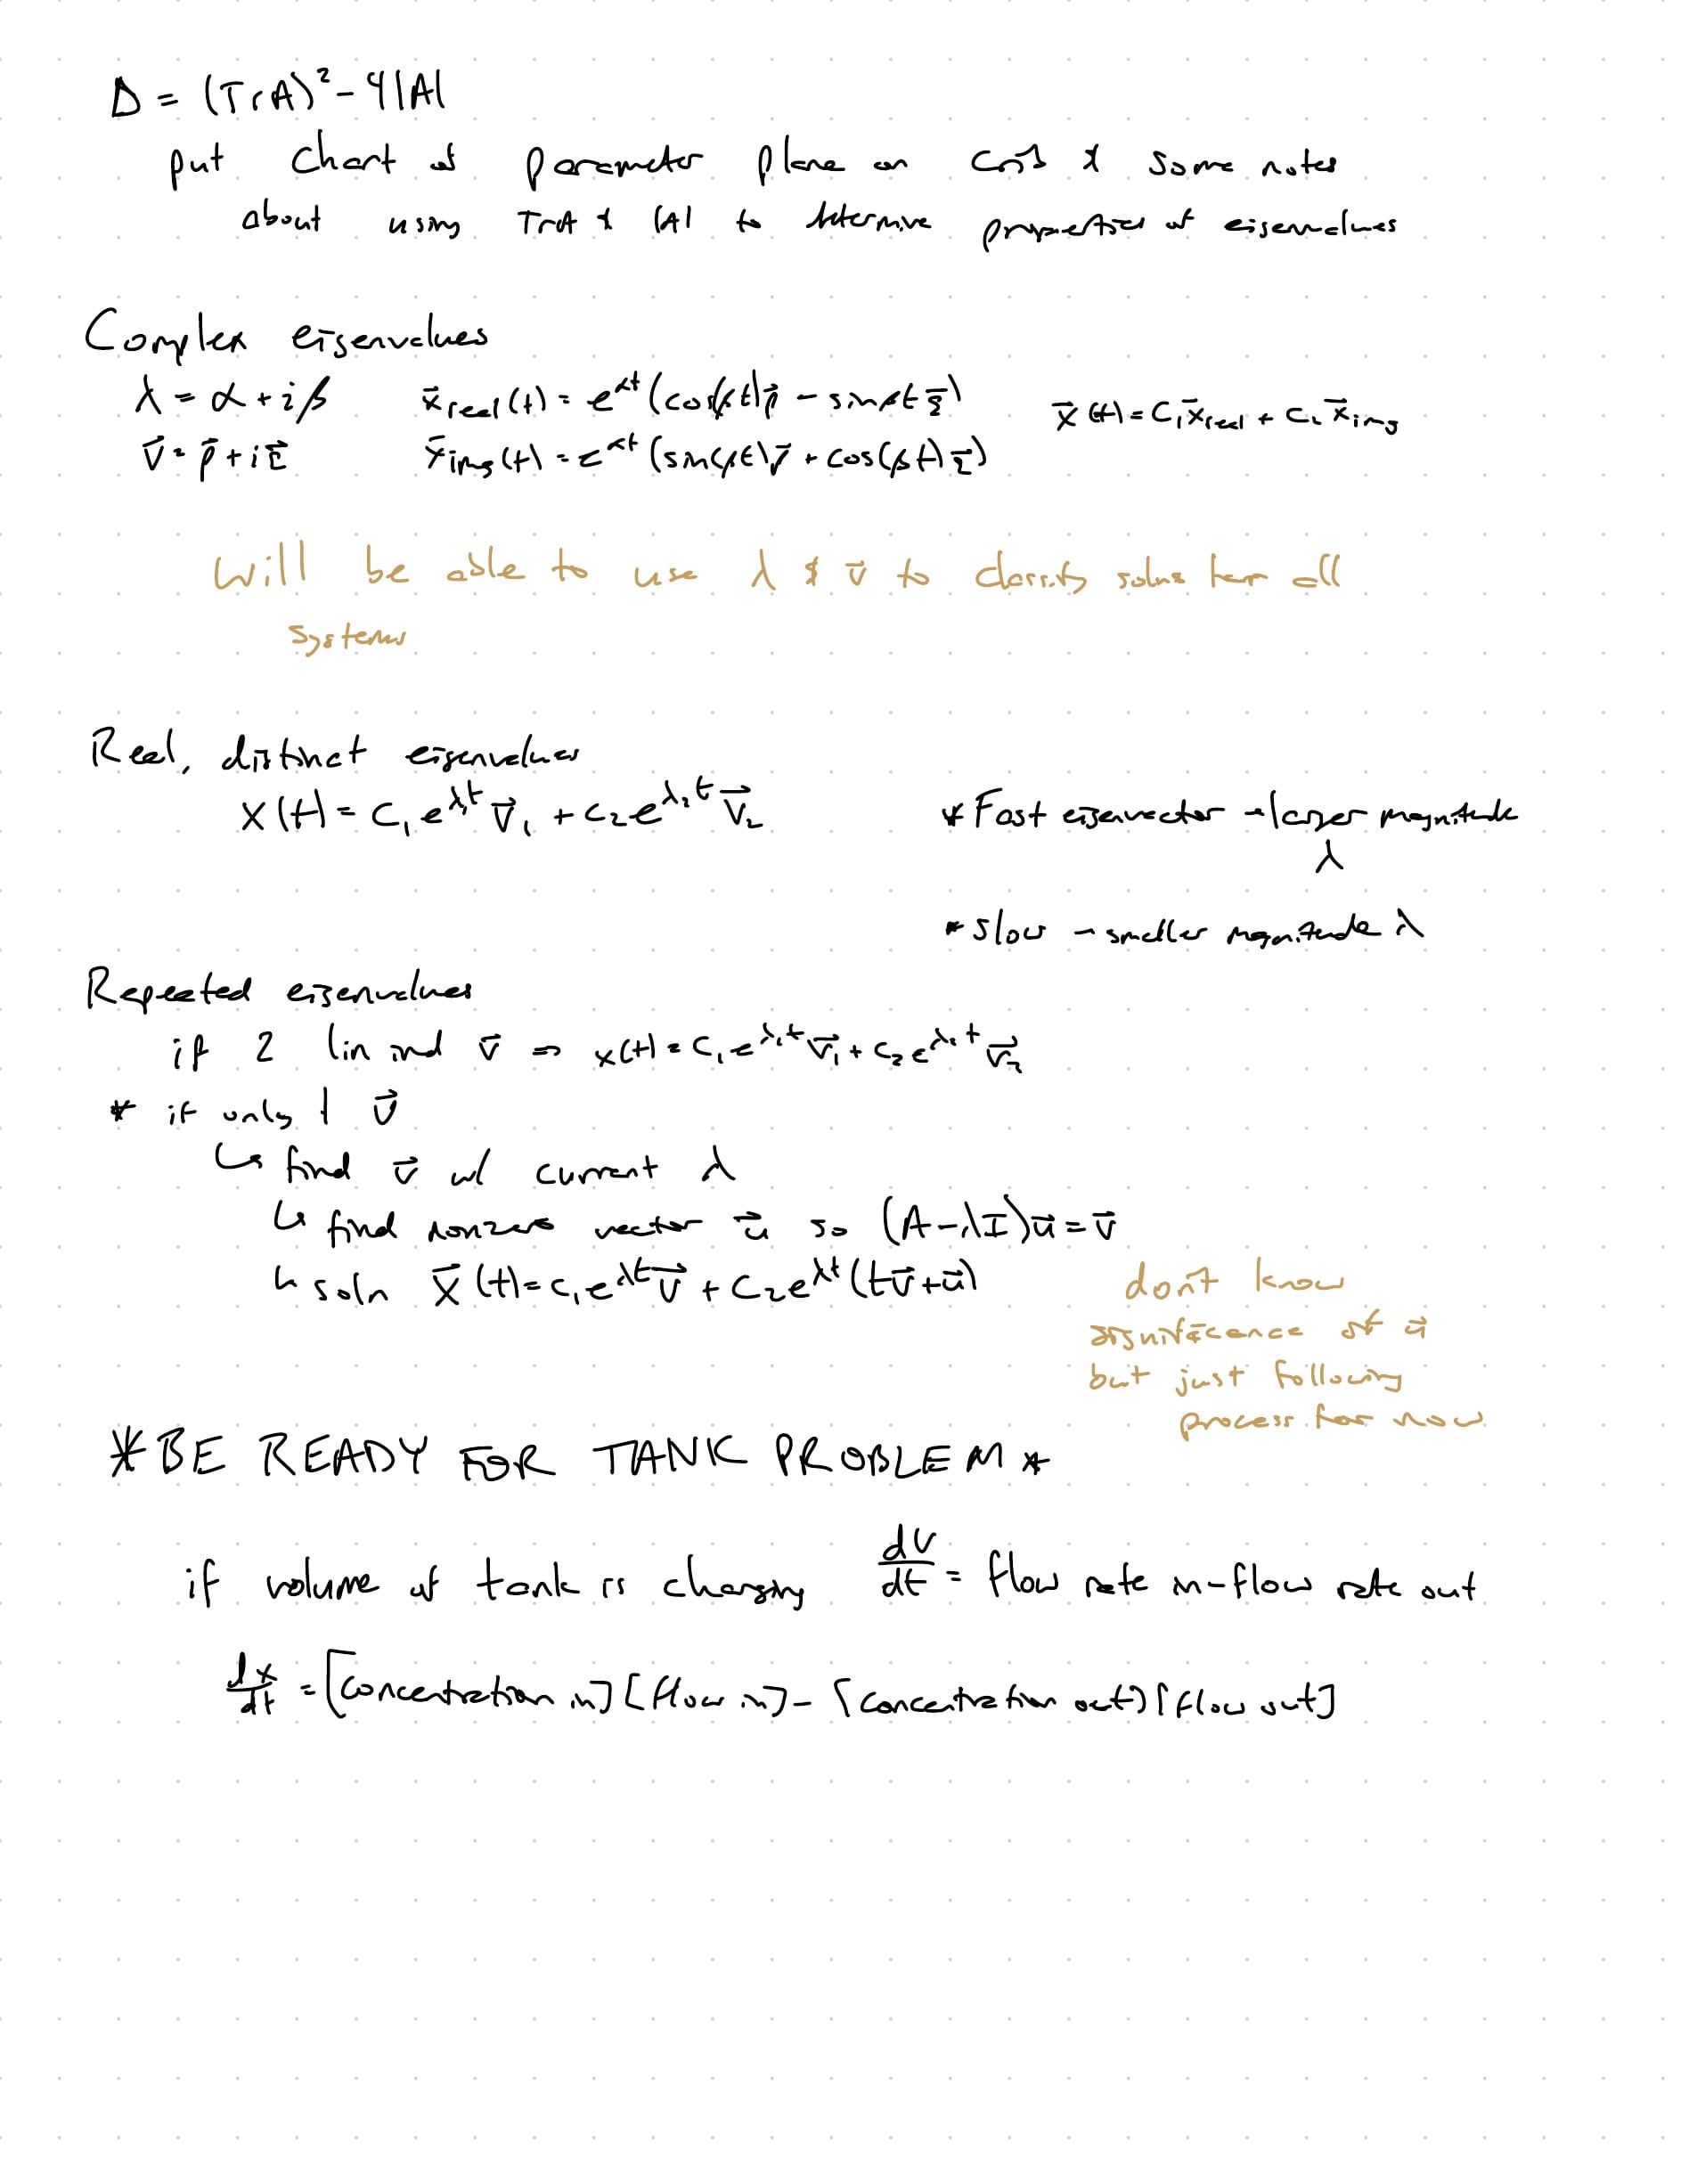 Δ = (TrA)² - 4|A|
put chart of parameter plane on & some notes
about using TrA & |A| to determine properties of eigenvalues
Complex eigenvalues
λ = α + iβ
x⃗real(t) = e^αt (cos(βt)p⃗ - sinβt q⃗)
x⃗(t) = C₁x⃗real + C₂x⃗img
v⃗ = p⃗ + iq⃗
x⃗img(t) = e^αt (sin(βt)p⃗ + cos(βt)q⃗)
Will be able to use λ & v⃗ to classify solns for all
systems
Real, distinct eigenvalues
x(t) = C₁e^λ₁t v⃗₁ + C₂e^λ₂t v⃗₂
* Fast eigenvector → larger magnitude
λ
* slow → smaller magnitude λ
Repeated eigenvalues
if 2 lin ind v⃗ ⇒ x(t) = C₁e^λ₁t v⃗₁ + C₂e^λ₁t v⃗₂
* if only 1 v⃗
↳ find v⃗ w/ current λ
↳ find nonzero vector u⃗ so (A-λI)u⃗ = v⃗
↳ soln x⃗(t) = C₁e^λt v⃗ + C₂e^λt (tv⃗ + u⃗)
don't know
significance of u⃗
but just following
process for now
*BE READY FOR TANK PROBLEM*
if volume of tank is changing dV/dt = flow rate in - flow rate out
dx/dt = [concentration in][flow in] - [concentration out][flow out]